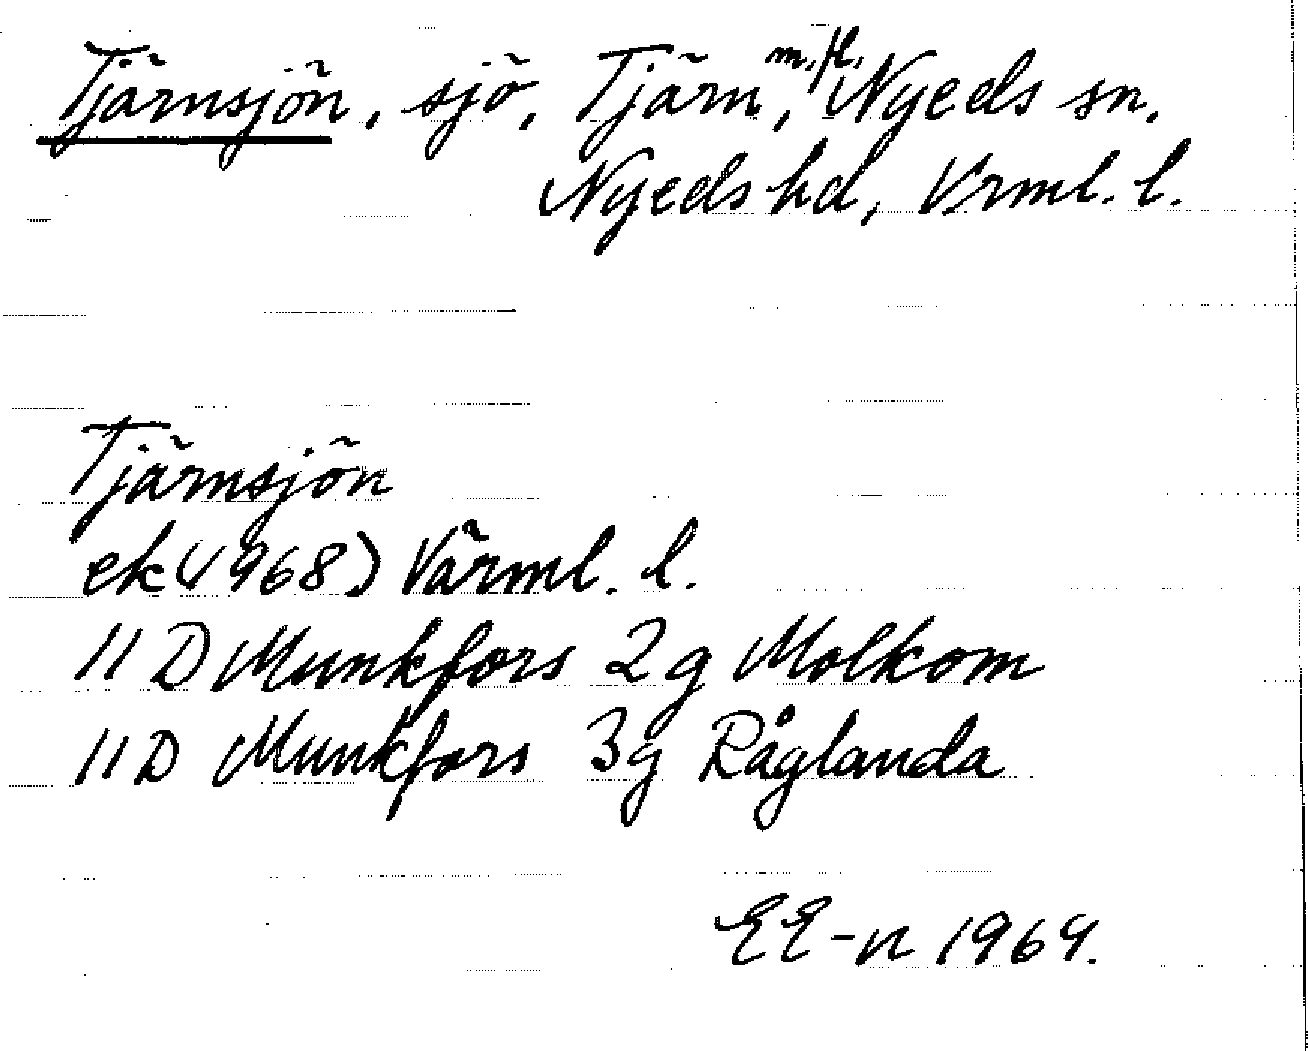 Tjärnsjön, sjö, Tjärn, m.fl. Nyeds sn.
Nyeds hd, Vrml. l.
Tjärnsjön
ek (1968) Värml. l.
11 D Munkfors 2g Molkom
11 D Munkfors 3g Råglanda
EE-n 1969.